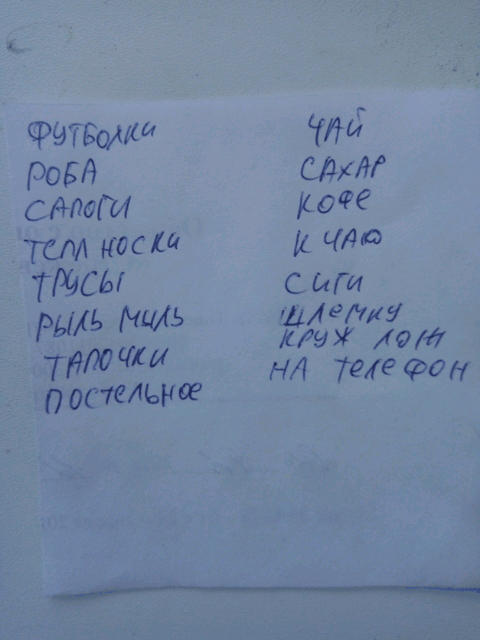 ФУТБОЛКИ
РОБА
САПОГИ
ТЕПЛ НОСКИ
ТРУСЫ
РЫЛЬ МЫЛЬ
ТАПОЧКИ
ПОСТЕЛЬНОЕ
ЧАЙ
САХАР
КОФЕ
К ЧАЮ
СИГИ
ШЛЕМКУ
КРУЖ ЛОЖ
НА ТЕЛЕФОН